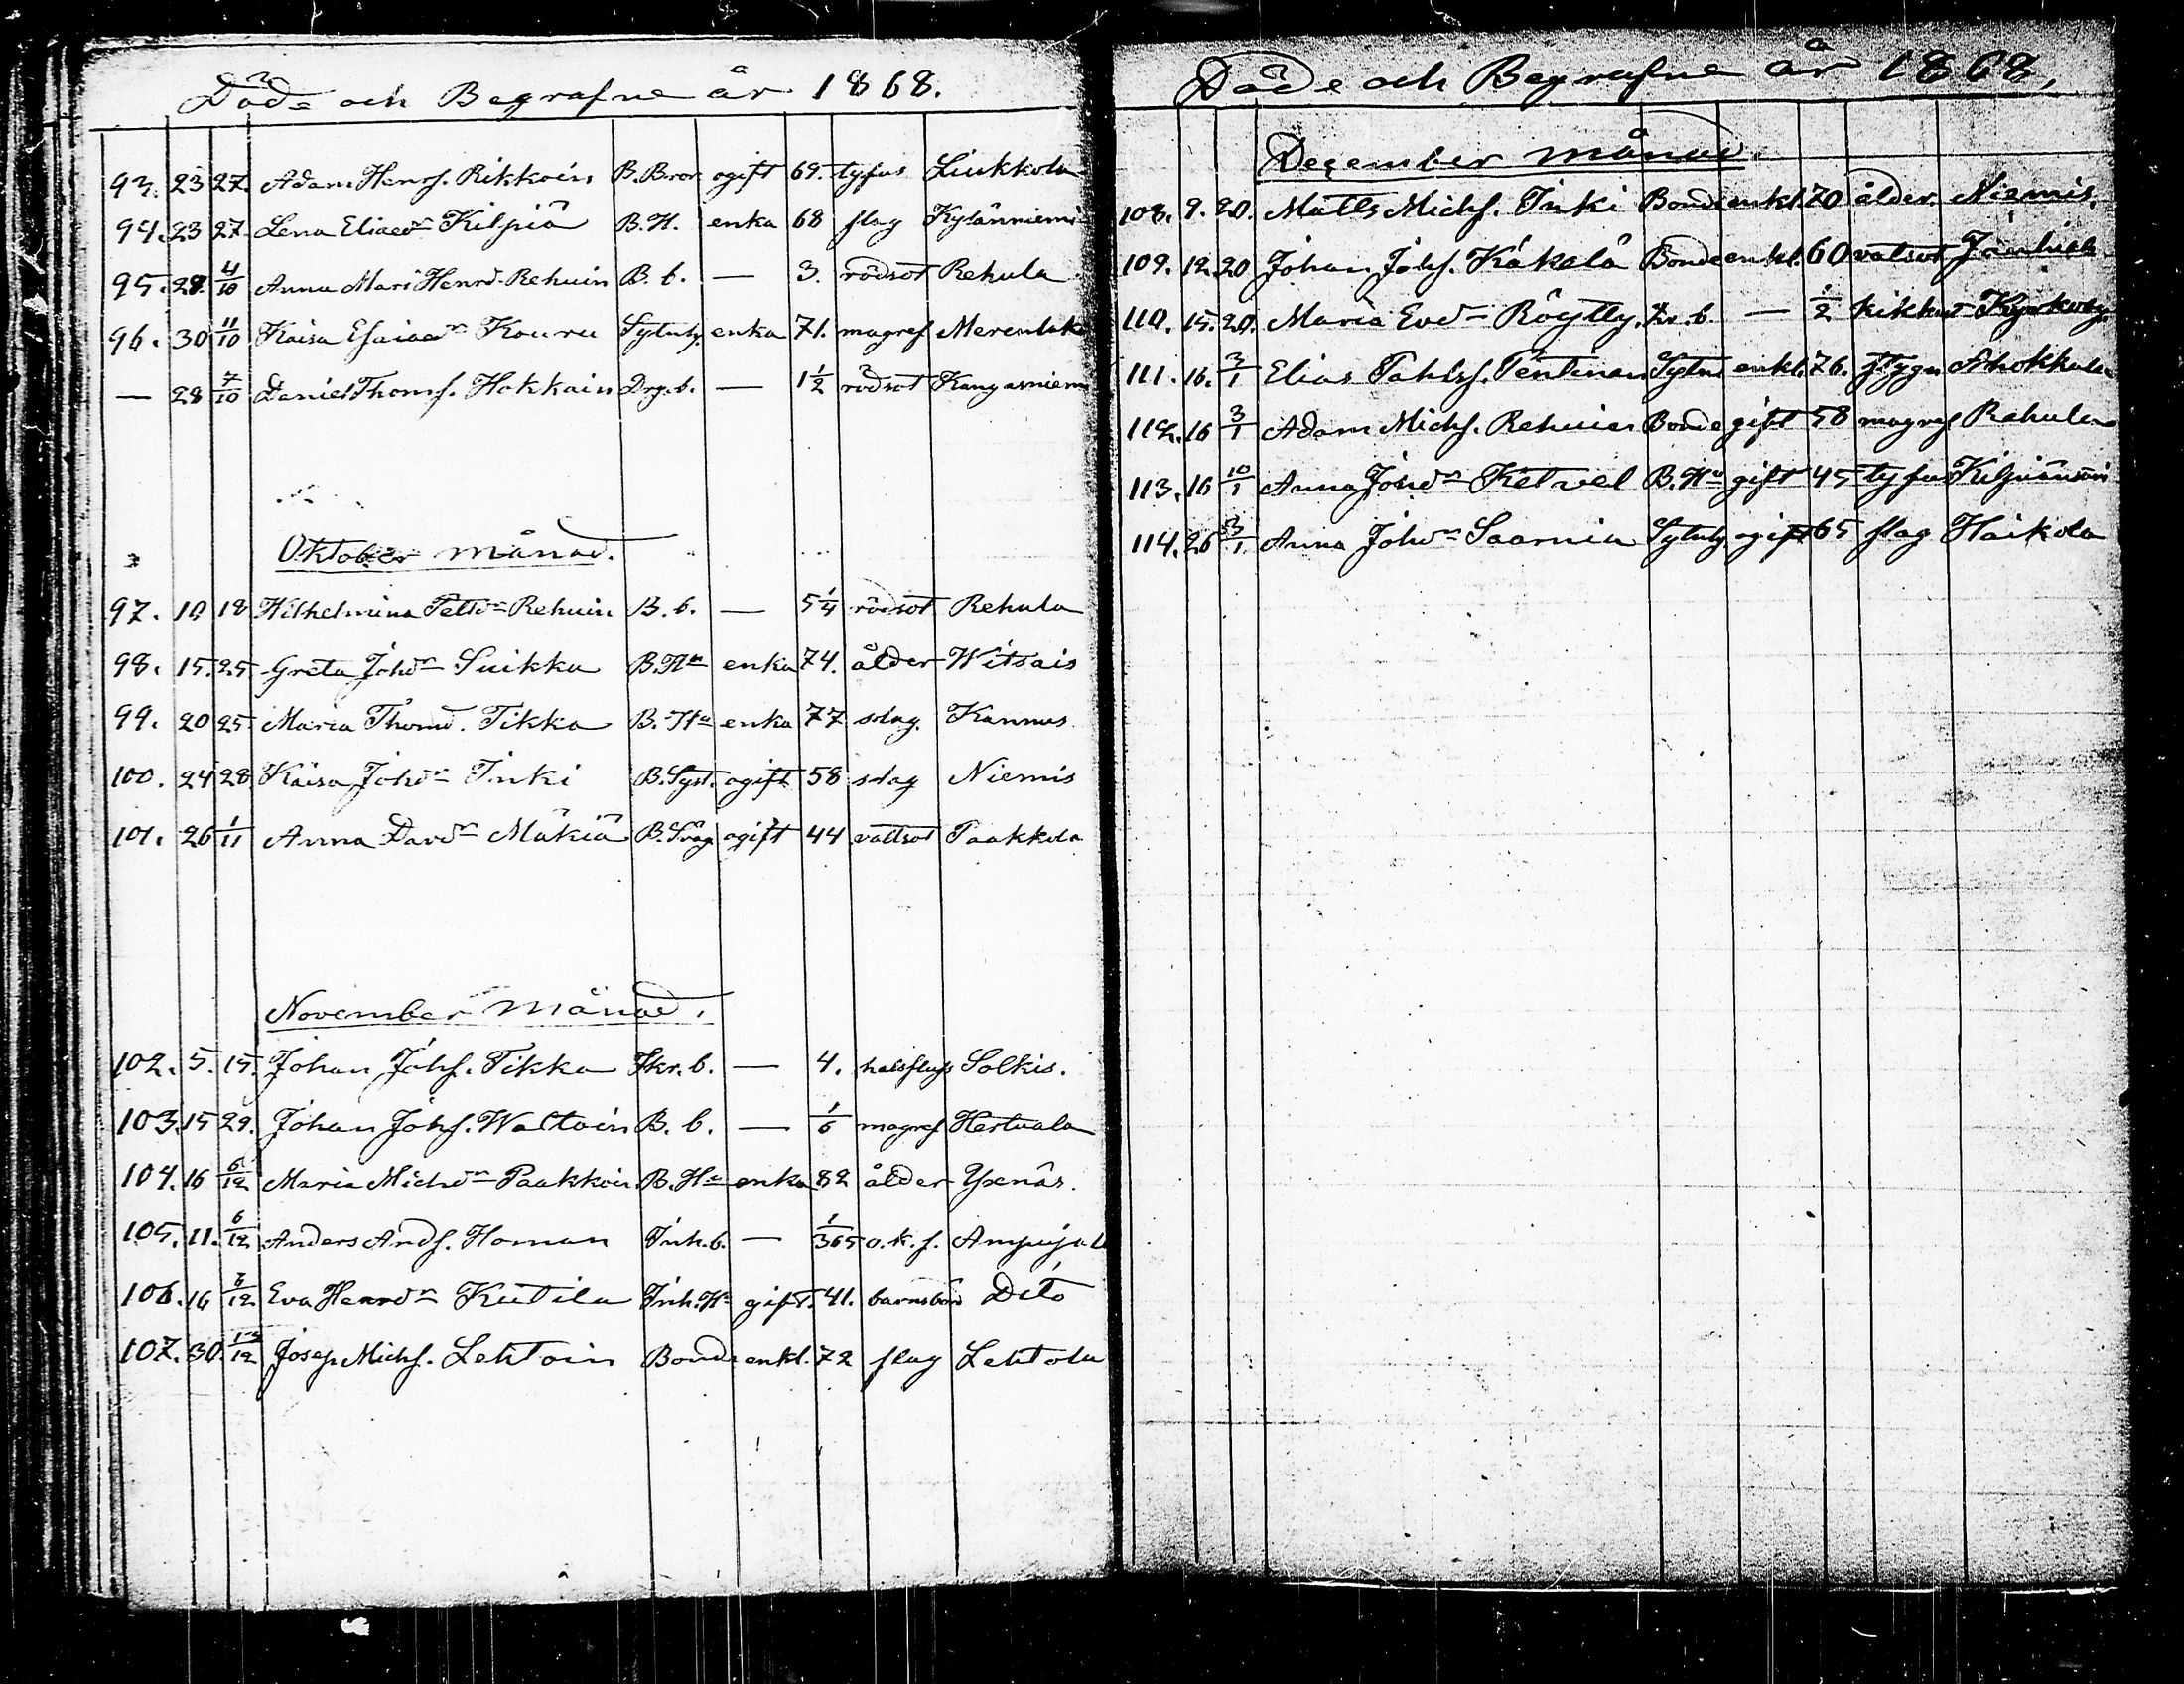 Döde och Begrafne år 1868.
93. 23 27. Adam Henrs. Rikkoin B. Bror ogift 69. tyfus Liukkola
94. 23 27. Lena Eliaedr Kilpiä B. H. enka 68 slag Kylänniemi
95. 29. 4/10 Anna Mari Henrd. Rehuin B. b. — 3. rödsot Rehula
96. 30 11/10 Kaisa Esaiaedr Kouru Sytnhj enka 71. magref
— 28 4/10 Daniel Thoms. Hokkain Drg. b. — 1 1/2 rödsot Kangasniem
Oktober månad.
97. 10 18 Wilhelmina Pettdr Rehuin B. b. — 5 1/4 rödsot Rehula
98. 15. 25 Greta Johdr Suikka B. Ha enka 74. ålder Witsais
99. 20 25 Maria Thomd. Tikka B. Ha enka 77 slag. Kannus
100. 24 28 Kaisa Johdr Inki B. Syst. ogift 58 slag Niemis
101. 26 1/11 Anna Davdr Mäkiä B. Sväg ogift 44 vattsot Paakkola
November månad.
102. 5. 15. Johan Johs. Tikka Skr. b. — 4. halsfluss Solkis.
103. 15 29. Johan Johs. Waltoin B. b. — 1/6 magref Hertuala
104. 16 6/12 Maria Michdr Paakkoin B. Ha enka 82 ålder Yxnäs.
105. 11. 6/12 Anders Ands. Homan Inh. b. — 1/365 o.k.s. Ampujala
106. 16 6/12 Eva Henrdr Kutila Inh. Ha gift. 41. barnsbörd Dito
107. 30. 12 Josep Michs. Lehtoin Bonde enkl. 72 slag Lehtola
Döde och Begrafne år 1868.
December månad.
108. 9. 20. Matts Michs. Inki Bonde enkl. 70 ålder. Niemis.
109. 12. 20 Johan Johs. Käkelä Bonde enkl. 60 vatsot
110. 15. 20. Maria Evdr Röytty. b. — 1/2 kikhost Kyrkoby.
111. 16. 3/1 Elias Pahlss. Pentinen Sytn enkl. 76. stygn Ahokkala
112. 16 3/1 Adam Michs. Rehuin Bonde gift 58 magref Rehula
113. 16 10/1 Anna Johdr Ketvel B. Ha gift 45 tyfus
114. 26 3/1 Anna Johdr Saarnia Sytnhj ogift 65 slag Haikola